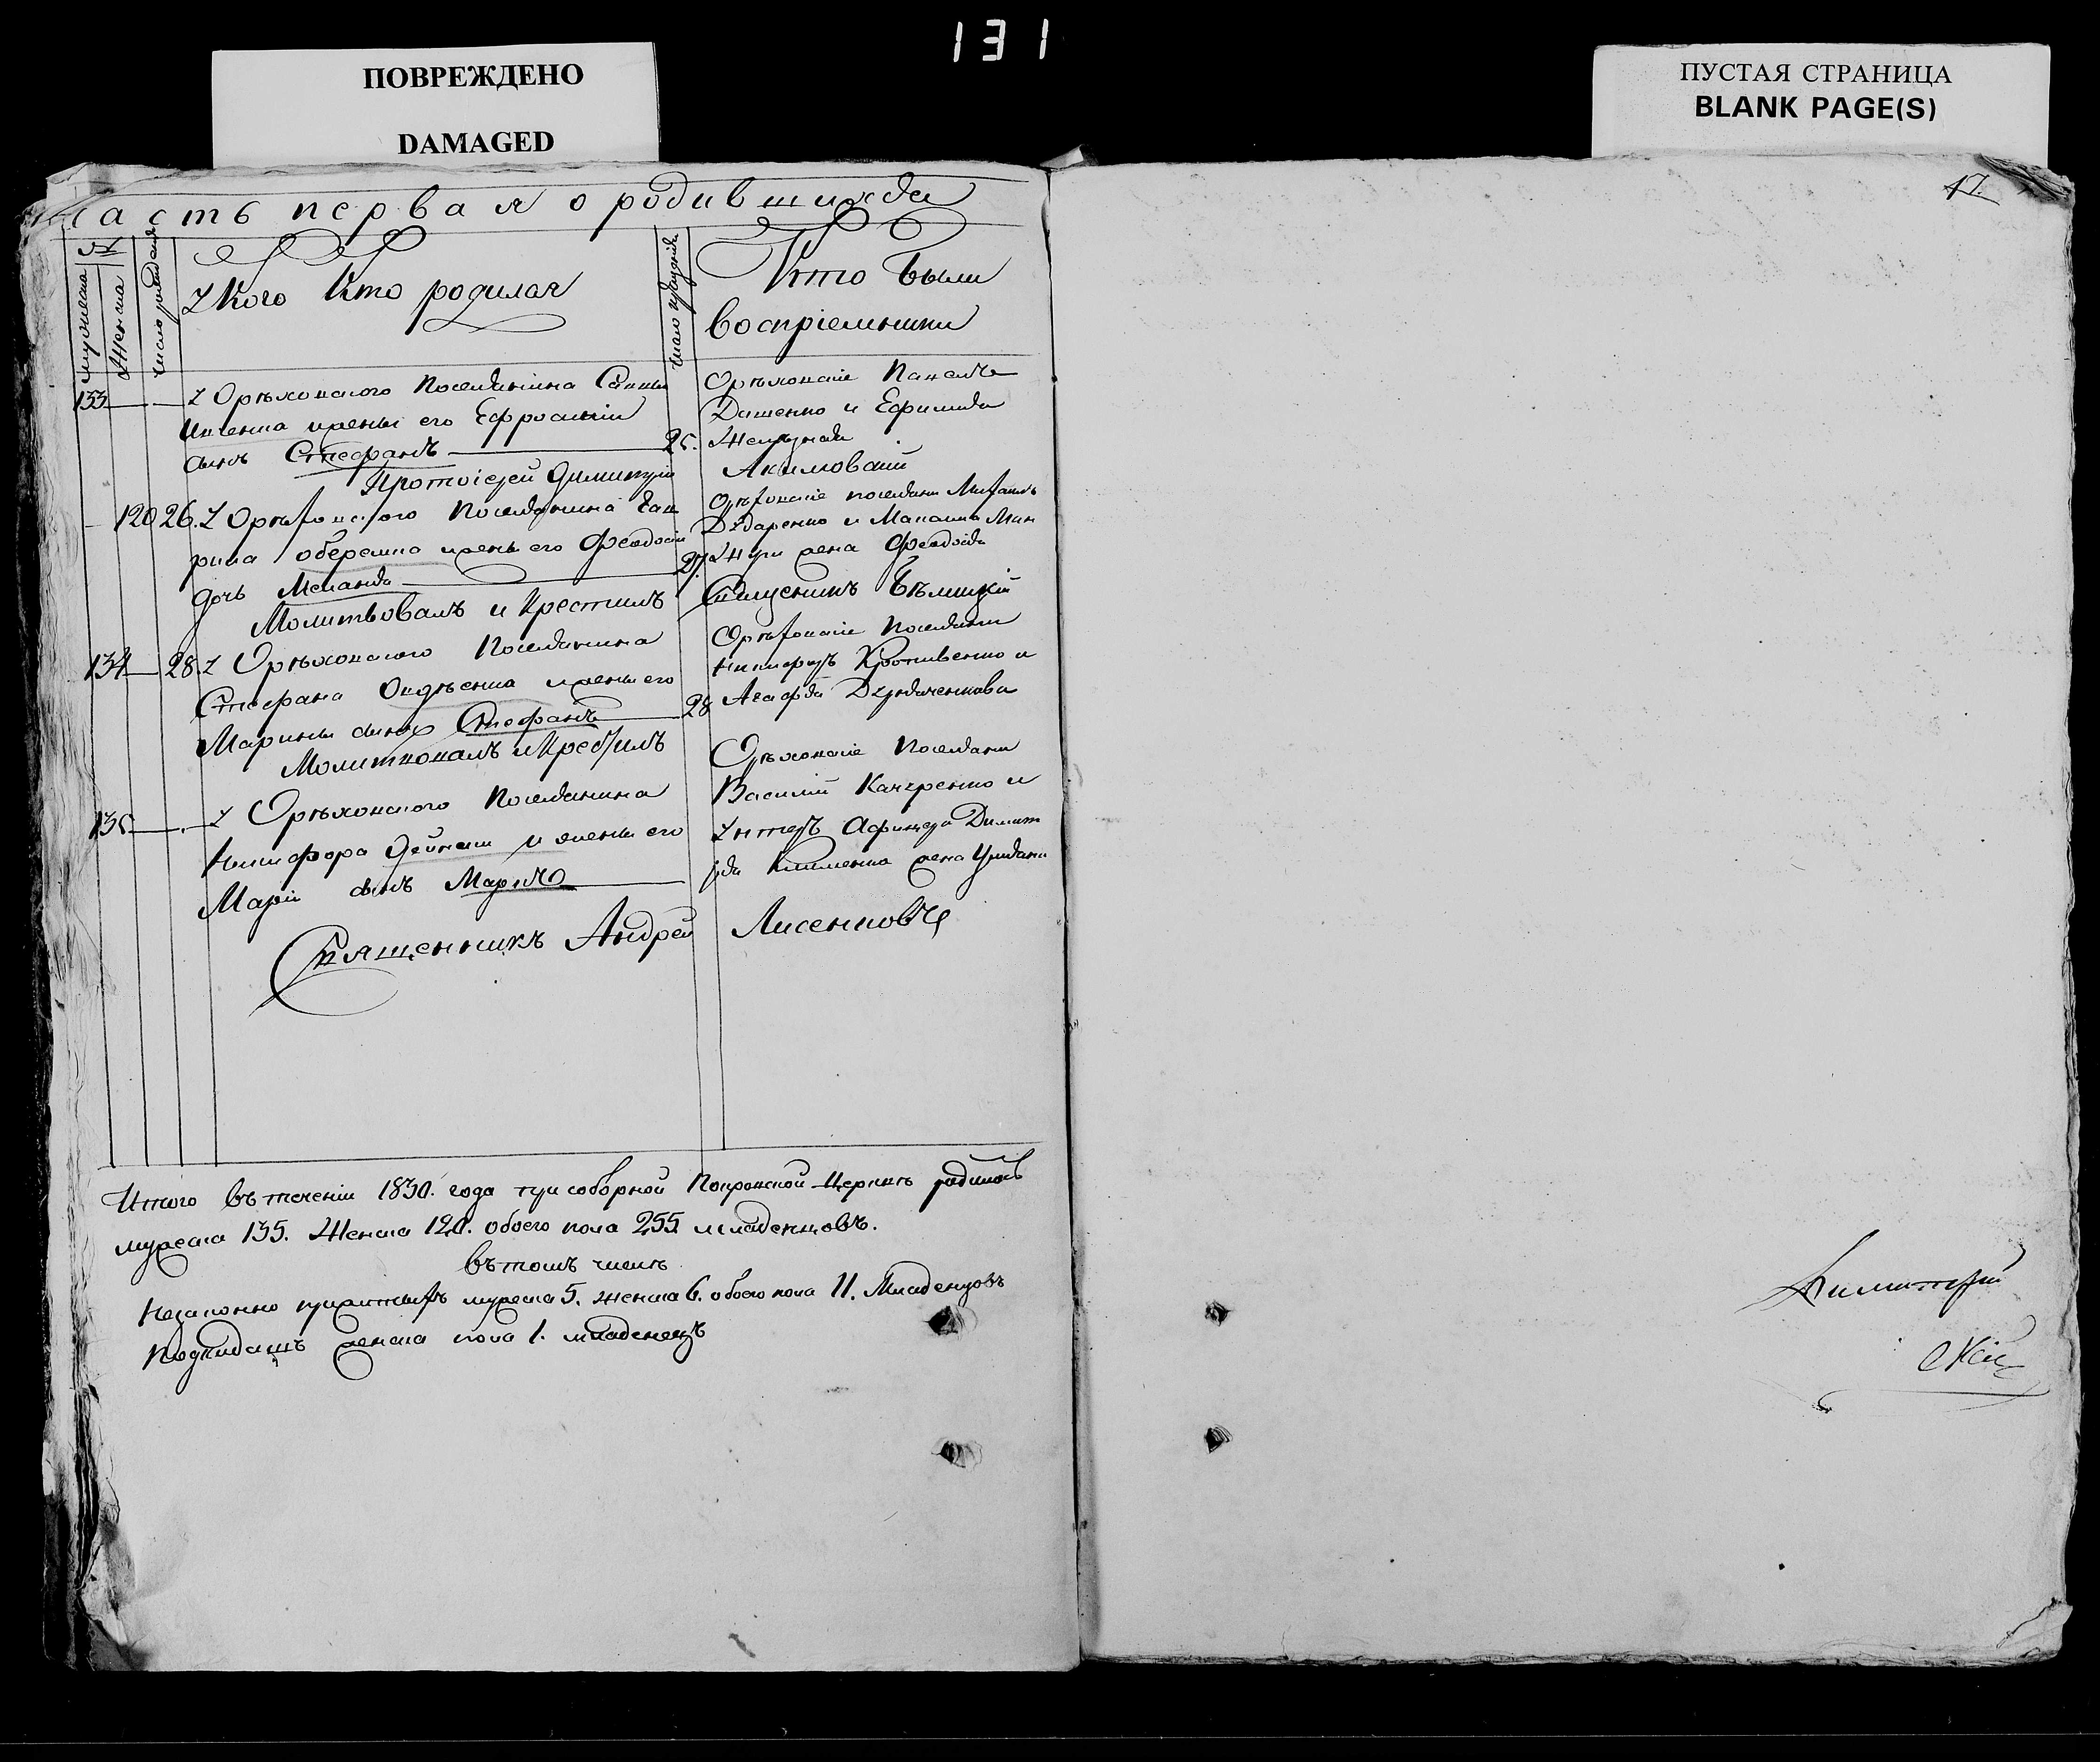 131
ПОВРЕЖДЕНО
DAMAGED
ПУСТАЯ СТРАНИЦА
BLANK PAGE(S)
17.
асть первая о родившихся
№
мужеска
Женска
число рождения
У Кого Кто родился
число крещенія
Кто были
воспріемники
133 У Орѣховского Поселянина Саввы
жены его Ефросиніи
сынъ Стефанъ 25.
Орѣховскіе Павелъ
Дашенко и Ефимія
Протоіерей Димитрій Акимовскій
120 26. У Орѣховского Поселянина Гав
рила жены его Феодосіи
дочь Меланія 27.
Орѣховскіе поселяне Михаилъ
и Максима
жена Феодосія
Молитвовалъ и Крестилъ Священникъ Бѣлицкій
134 28. У Орѣховского Поселянина
Стефана жены его
Марины сынъ Стефанъ 28
Орѣховскіе Поселяне
Никифоръ Кропивенко и
Агафія
Молитвовалъ и Крестилъ
135 У Орѣховского Поселянина
Никифора Дейнеки и жены его
Маріи сынъ Маркъ
Орѣховскіе Поселяне
Василій Кучеренко и
Унтеръ Афицера Димит
рія Клименка жена Уліяна
Священникъ Андрей Лисенковъ
Итого въ теченіи 1830. года при соборной Покровской Церквѣ родилось
мужеска 135. Женска 120. обоего пола 255 младенцовъ.
въ томъ числѣ
Незаконно прижитыхъ мужеска 5. женска 6. обоего пола 11. Младенцовъ
Подкидышъ женска пола 1. младенецъ
Димитрій
скій